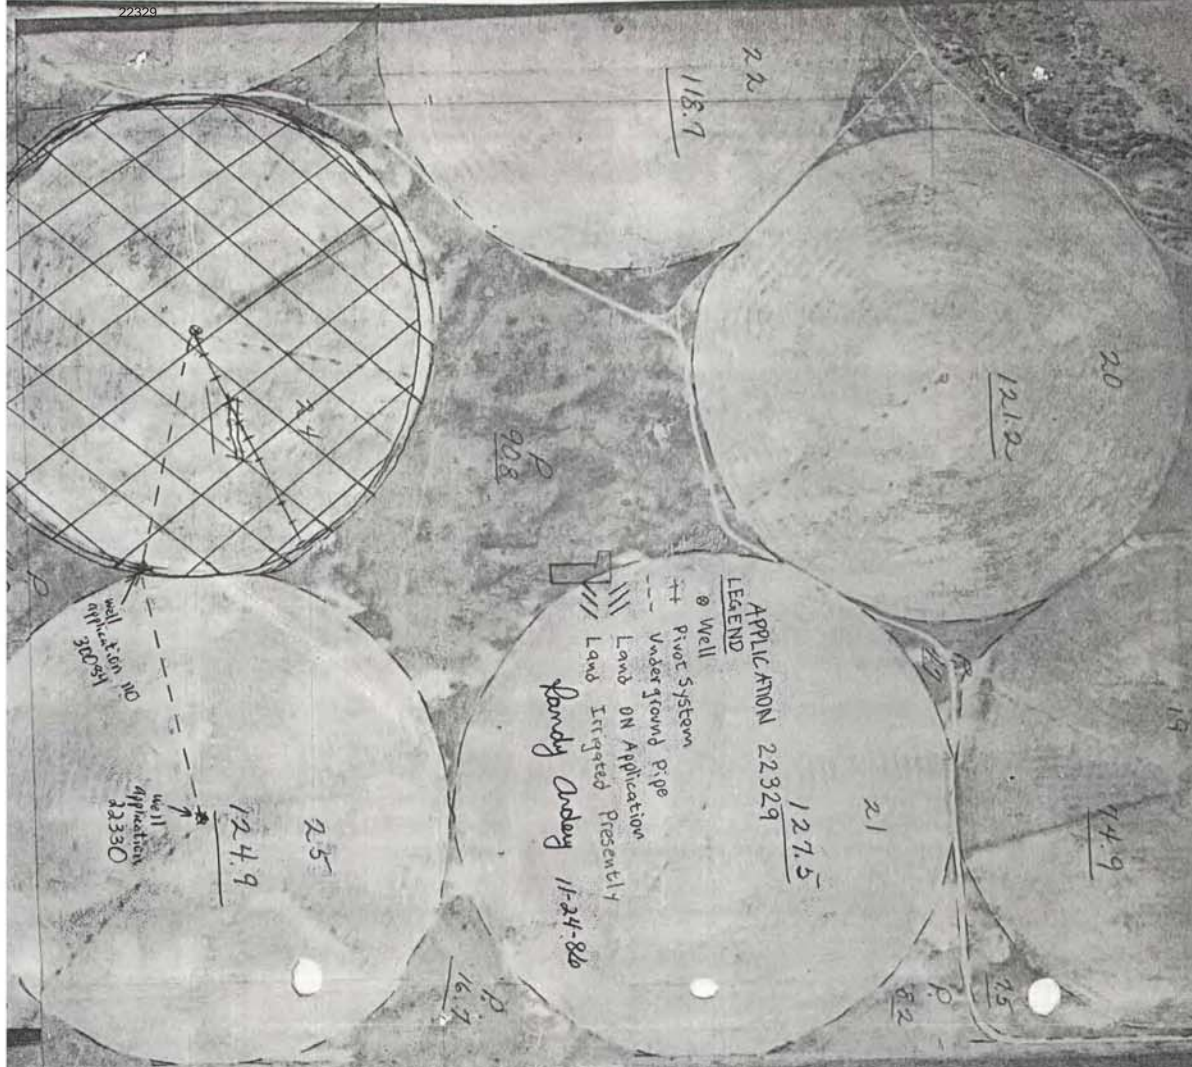 22329
22
118.7
20
121.2
24
P
90.8
APPLICATION 22329
LEGEND
⊗ Well
++ Pivot System
--- Underground Pipe
\\\ Land ON Application
/// Land Irrigated Presently
Randy Ardery 11-24-86
21
127.5
19
74.9
well
application no
30094
well
application
22330
25
124.9
P
16.7
P
8.2
7.5
P